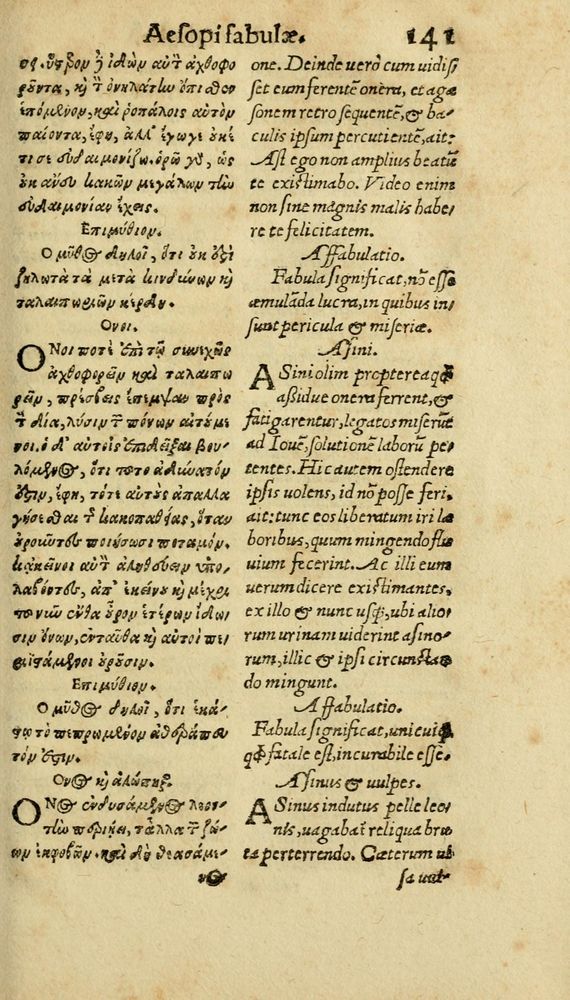 Aesopi fabulæ. 141
ος. ὕστερον ἢ ἰδὼν αὐτὸν ἀχθοφο
ροῦντα, καὶ τὸν ὀνηλάτην ὄπισθεν
ἑπόμενον, καὶ ῥοπάλοις αὐτὸν
παίοντα, ἔφη, ἀλλ' ἔγωγε οὐκέ
τι σε εὐδαιμονίζω. ὁρῶ γὰρ, ὡς
οὐκ ἄνευ κακῶν μεγάλων τὴν
εὐδαιμονίαν ἔχεις.
Επιμύθιον.
Ο μῦθος δηλοῖ, ὅτι οὐκ ἔστι
ζηλωτὰ τὰ μετὰ κινδύνων καὶ
ταλαιπωριῶν κέρδη.
Ονοι.
ΟΝοι ποτὲ ἐπὶ τῷ συνεχῶς
ἀχθοφορεῖν καὶ ταλαιπω
ρεῖν, πρέσβεις ἔπεμψαν πρὸς
τὸν δία, λύσιν τῶν πόνων αὐτούμε
νοι. ὁ δ' αὐτοῖς ἐπιδεῖξαι βου-
λόμενος, ὅτι τοῦτο ἀδύνατόν
ἐστιν, ἔφη, τότε αὐτοὺς ἀπαλλα
γήσεσθαι τῆς κακοπαθείας, ὅταν
οὐροῦντες ποιήσωσι ποταμόν.
κἀκεῖνοι αὐτὸν ἀληθεύειν ὑπο-
λαβόντες, ἀπ' ἐκείνου καὶ μέχρι
τοῦ νῦν ἔνθα οὖρον ἑτέρων ἴδω-
σιν ὄνων, ἐνταῦθα καὶ αὐτοὶ πε-
ριϊστάμενοι οὐροῦσιν.
Επιμύθιον.
Ο μῦθος δηλοῖ, ὅτι τὸ ἑκά-
στῳ τὸ πεπρωμένον ἀθεράπευ
τόν ἐστιν.
Ονος καὶ ἀλώπηξ.
ΟΝος ἐνδυσάμενος λεον-
τῆν περιῄει, τἄλλα τῶν ζώ-
ων ἐκφοβῶν. καὶ δὴ θεασάμε-
νος
one. Deinde uero cum uidis/
set eum ferentē onera, et aga
sonem retro sequentē, & ba/
culis ipsum percutientē, ait:
Ast ego non amplius beatū
te existimabo. Video enim
non sine magnis malis habe/
re te felicitatem.
Affabulatio.
Fabula significat, nō esse
æmulāda lucra, in quibus in/
sunt pericula & miseriæ.
Asini.
ASini olim propterea qđ
assidue onera ferrent, &
fatigarentur, legatos miserūt
ad Iouē, solutionē laborū pe/
tentes. Hic autem ostendere
ipsis uolens, id nō posse feri,
ait: tunc eos liberatum iri la
boribus, quum mingendo flu
uium fecerint. Ac illi eum
uerum dicere existimantes,
ex illo & nunc usq;, ubi alio/
rum urinam uiderint asino/
rum, illic & ipsi circunstā
do mingunt.
Affabulatio.
Fabula significat, unicuiq;
qđ fatale est, incurabile esse.
Asinus & uulpes.
ASinus indutus pelle leo/
nis, uagabat reliqua bru
ta perterrendo. Cæterum ui
sa uul-